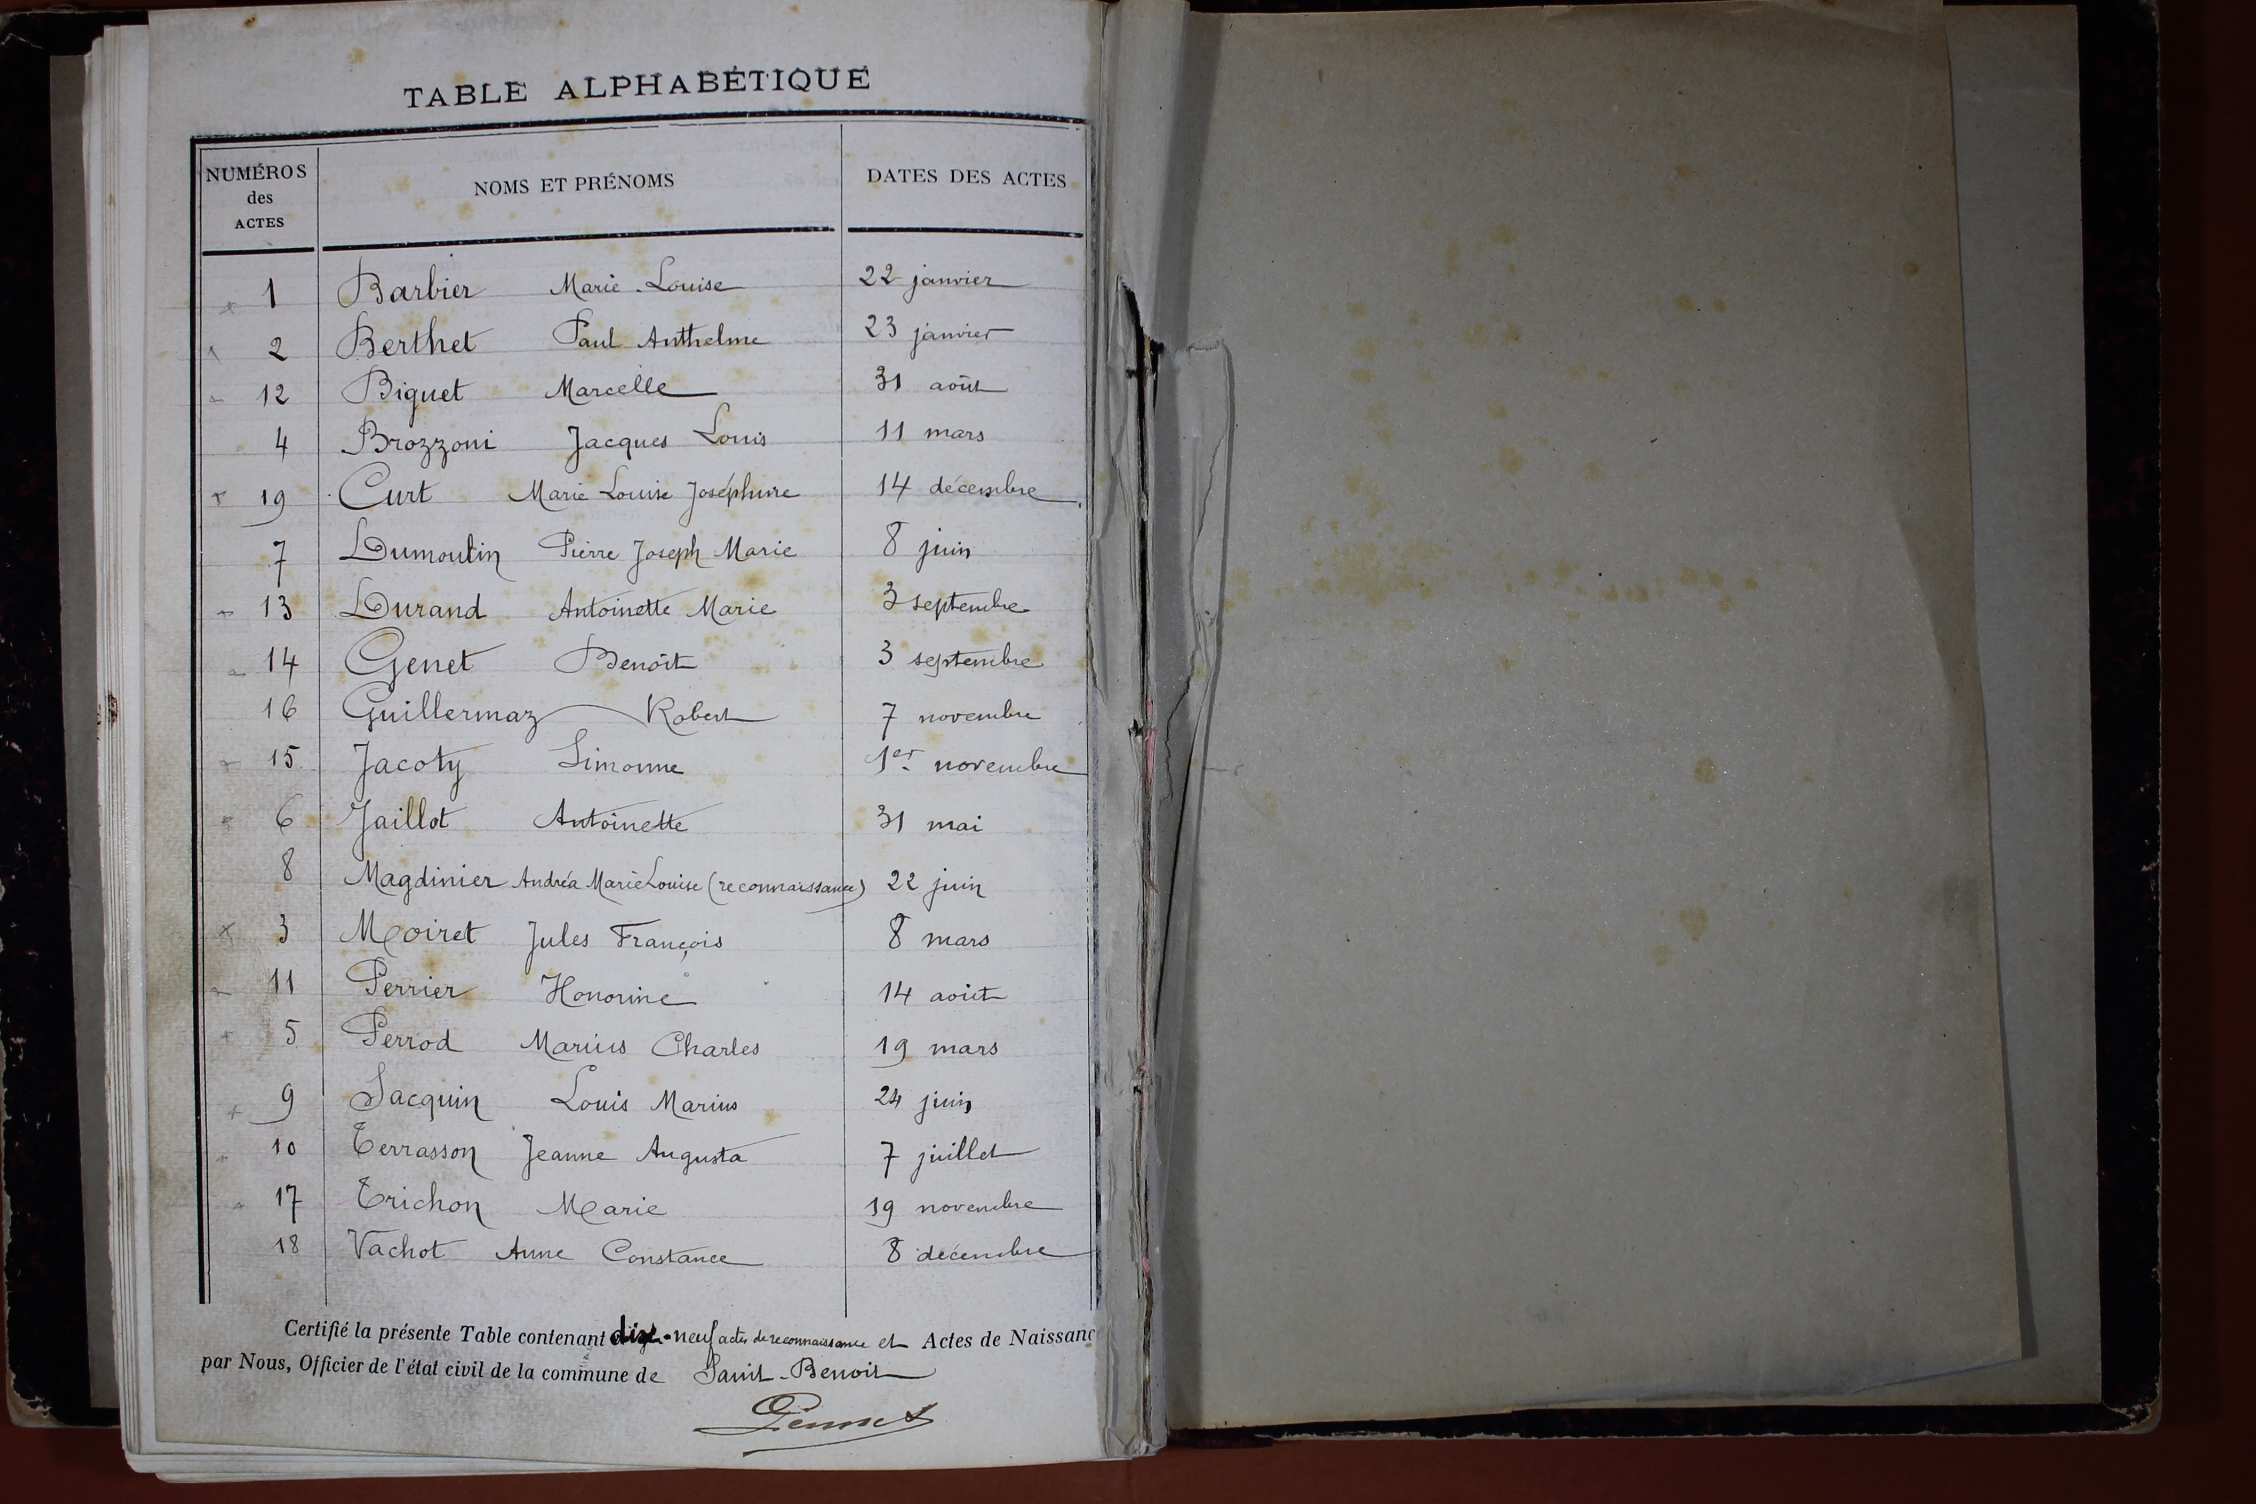 TABLE ALPHABÉTIQUE
NUMÉROS des ACTES
NOMS ET PRÉNOMS
DATES DES ACTES
1 Barbier Marie-Louise 22 janvier
2 Berthet Paul Anthelme 23 janvier
12 Biguet Marcelle 31 août
4 Brozzoni Jacques Louis 11 mars
19 Curt Marie Louise Joséphine 14 décembre
7 Dumoulin Pierre Joseph Marie 8 juin
13 Durand Antoinette Marie 3 septembre
14 Genet Benoît 3 septembre
16 Guillermaz Robert 7 novembre
15 Jacoty Simonne 1er novembre
6 Jaillot Antoinette 31 mai
8 Magdinier Andréa Marie Louise (reconnaissance) 22 juin
3 Moiret Jules François 8 mars
11 Perrier Honorine 14 août
5 Perrod Marius Charles 19 mars
9 Jacquin Louis Marius 24 juin
10 Terrasson Jeanne Augusta 7 juillet
17 Trichon Marie 19 novembre
18 Vachot Anne Constance 8 décembre
Certifié la présente Table contenant dix-neuf actes de reconnaissance et Actes de Naissanc
par Nous, Officier de l'état civil de la commune de Saint-Benoit